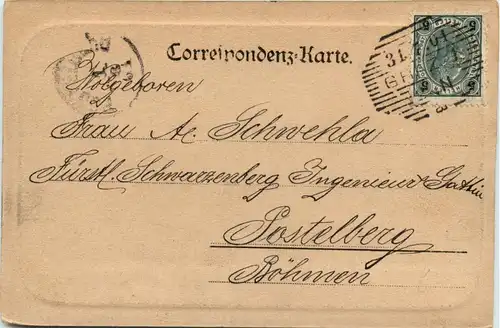 Correspondenz-Karte.
Wolgeboren
Frau Ac. Schwehla
Fürstl. Schwarzenberg Ingenieurs Gattin
Postelberg
Böhmen
5 5
5 5